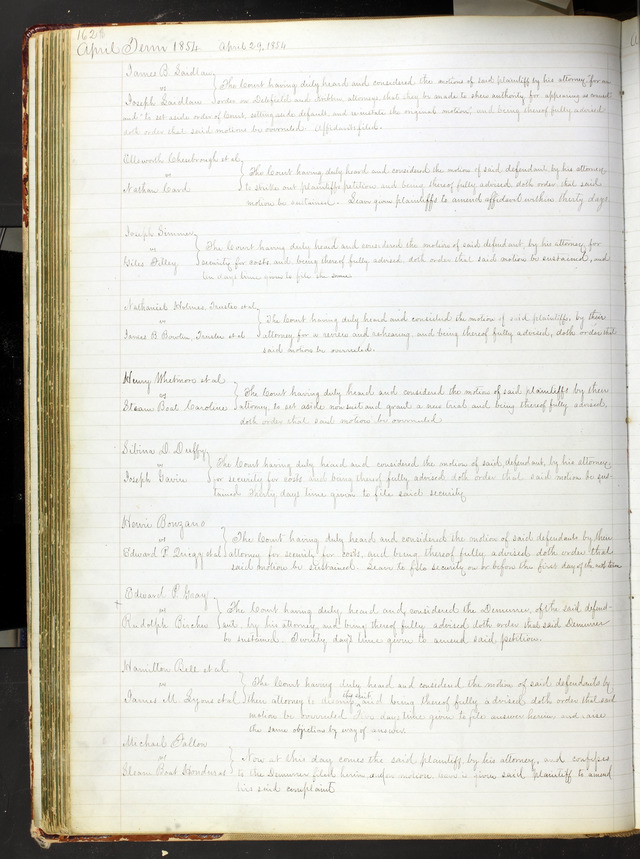 162
April Term 1854 April 29, 1854
James B. Laidlaw
vs
Joseph Laidlaw
The Court having duly heard and considered the motions of said plaintiff by his attorney "for an
order on and attorneys that they be made to shew authority for appearing as counsel
and "to set aside order of Court, setting aside default, and re instate the original motion", and being thereof fully advised
doth order that said motions be overruled. Affidavits filed.
Ellsworth et al
vs
Nathan Card
The Court having duly heard and considered the motion of said defendant, by his attorney,
to strike out plaintiffs petition and being thereof fully advised, doth order that said
motion be sustained. Leave given plaintiffs to amend affidavit within thirty days.
Joseph
vs
Giles Filley
The Court having duly heard and considered the motion of said defendant, by his attorney, for
security for costs and being thereof fully advised doth order that said motion be sustained, and
ten days time given to file the same
Nathaniel Holmes Trustee et al
vs
James B. Bowlin, Trustee et al
The Court having duly heard and considered the motion of said plaintiffs, by their
attorney for a review and rehearing, and being thereof fully advised, doth order that
said motion be overruled.
Henry Whetmore et al
vs
Steam Boat Caroline
The Court having duly heard and considered the motion of said plaintiffs by their
attorney, to set aside nonsuit and grant a new trial and being thereof fully advised,
doth order that said motion be overruled
D. Duffy
vs
Joseph
The Court having duly heard and considered the motion of said defendant, by his attorney,
for security for costs and being thereof fully advised doth order that said motion be sus-
tained. Thirty days time given to file said security
Bonzano
vs
Edward P. et al
The Court having duly heard and considered the motion of said defendants by their
attorney for security for costs, and being thereof fully advised doth order that
said motion be sustained. Leave to file security on or before the first day of the next term
Edward P. Gray
vs
Rudolph Bircher
The Court having duly heard and considered the Demurrer of the said defend-
ant, by his attorney, and being thereof fully advised doth order that said Demurrer
be sustained. Twenty days time given to amend said petition.
Hamilton Bell et al
vs
James M. Lyons et al
The Court having duly heard and considered the motion of said defendants by
their attorney to dismiss this suit and being thereof fully advised doth order that said
motion be overruled days time given to file answer herein and raise
the same objection by way of answer
Michael Fallon
vs
Steam Boat Honduras
Now at this day comes the said plaintiff by his attorney, and confesses
to the Demurrer filed herein, and on motion leave is given said plaintiff to amend
his said complaint